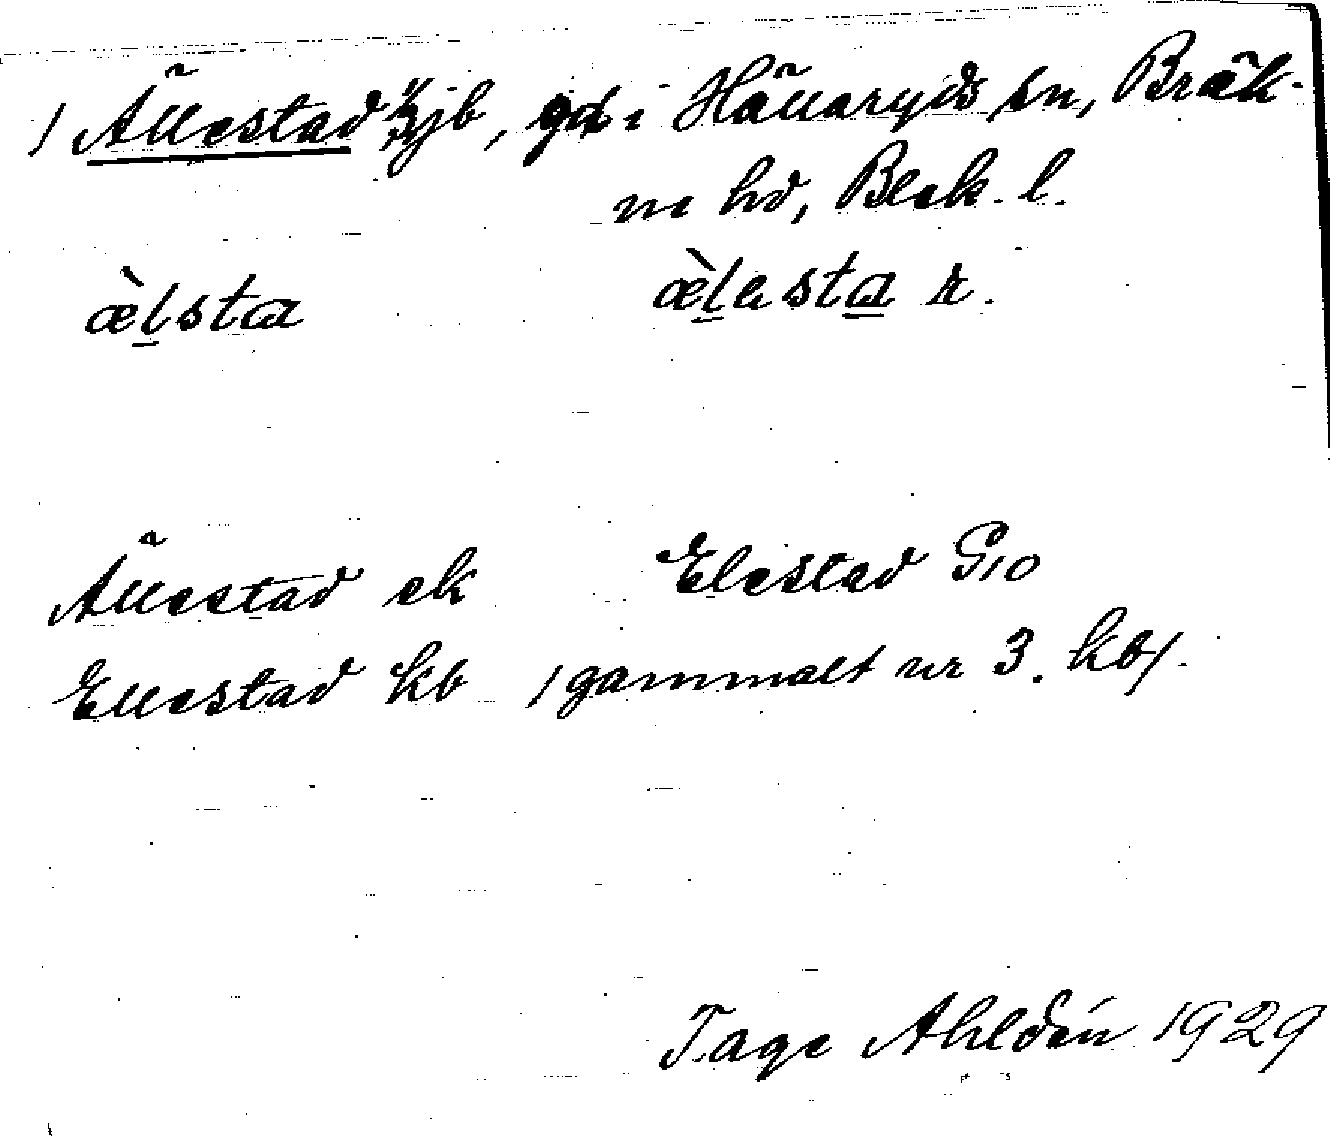 / Ällestad jb, gd i Hällaryds sn, Bräk-
ne hd, Blek. l.
æ̀lsta æ̀lesta r.
Ällestad ek Elestad G10
Ellestad kb / gammalt nr 3. kb/.
Tage Ahldén 1929